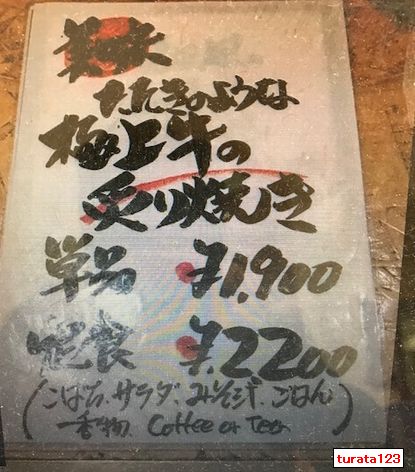 たたきのような
極上牛の
炙り焼き
単品 ¥1,900
定食 ¥2200
(こばち、サラダ、みそ汁、ごはん)
香物 Coffee or Tea
turata123